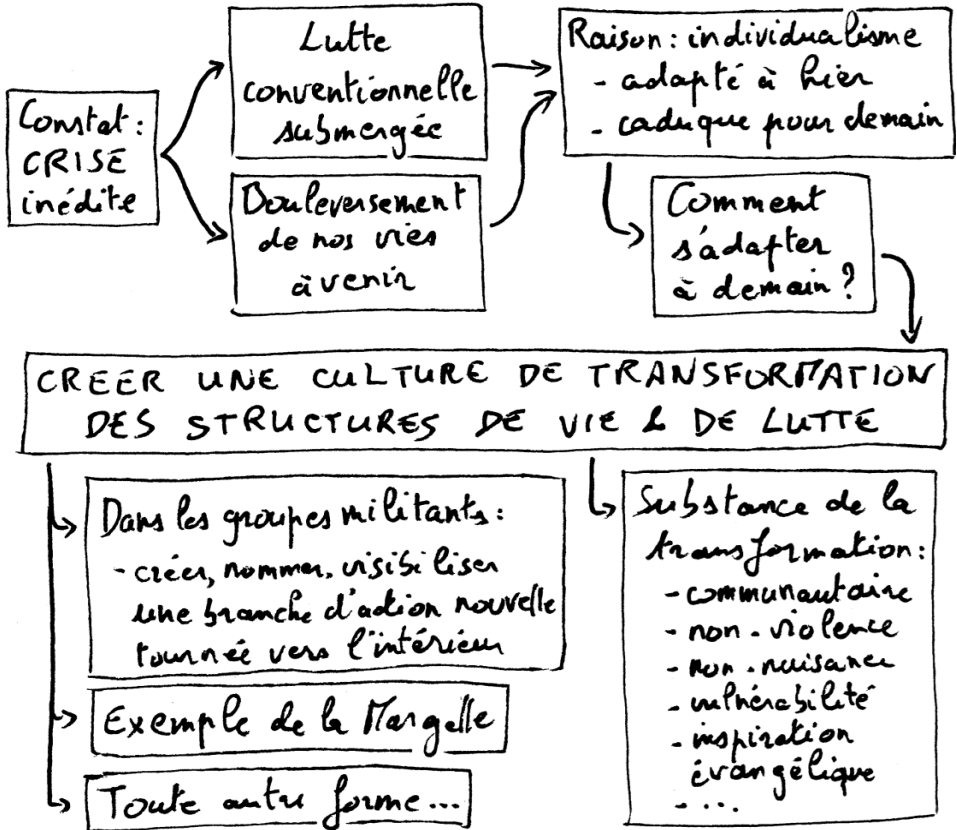 Constat :
CRISE
inédite
Lutte
conventionnelle
submergée
Bouleversement
de nos vies
à venir
Raison : individualisme
- adapté à hier
- caduque pour demain
Comment
s'adapter
à demain ?
CREER UNE CULTURE DE TRANSFORMATION
DES STRUCTURES DE VIE & DE LUTTE
Dans les groupes militants :
- créer, nommer, visibiliser
une branche d'action nouvelle
tournée vers l'intérieur
Exemple de la Margelle
Toute autre forme...
Substance de la
transformation :
- communautaire
- non-violence
- non-nuisance
- vulnérabilité
- inspiration
évangélique
- ....